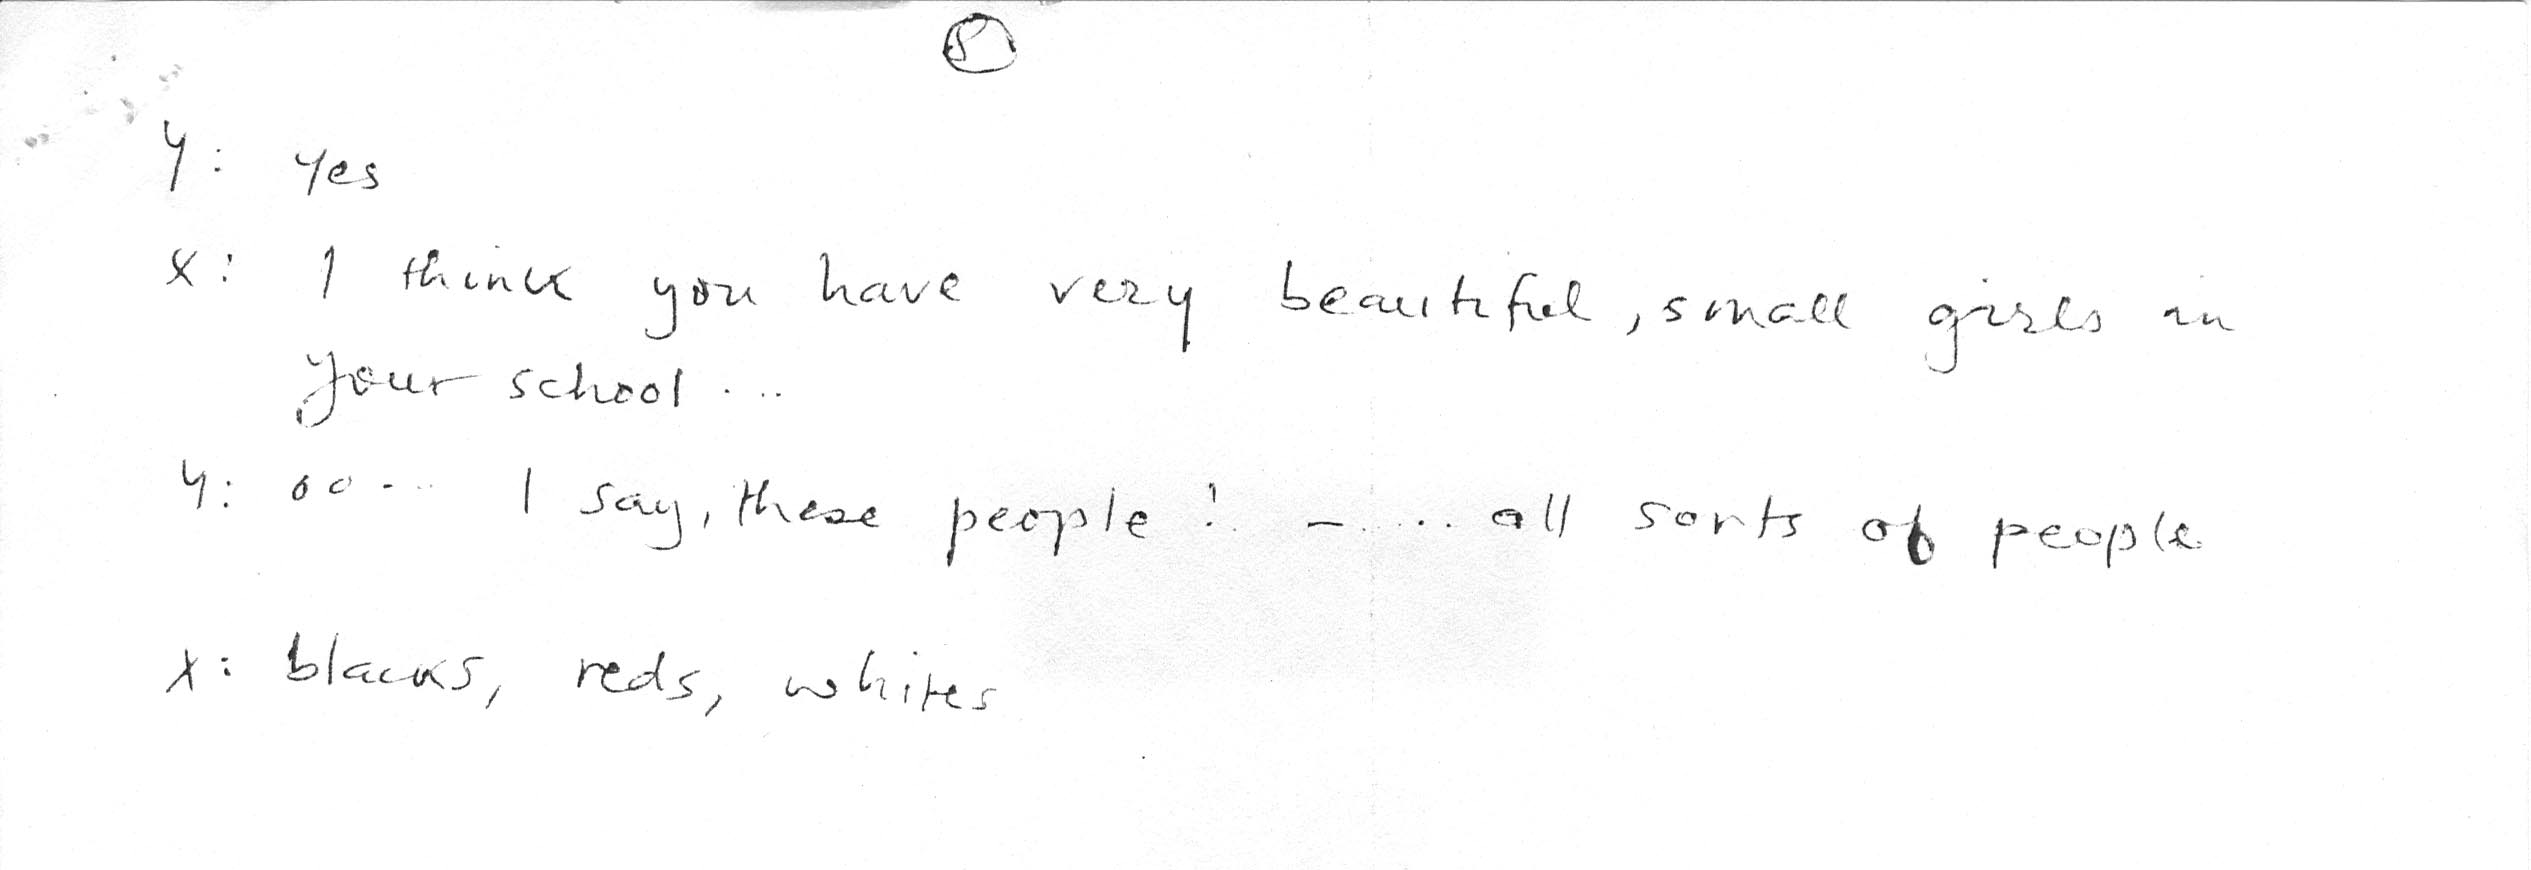 Y: Yes
X: I think you have very beautiful, small girls in
your school ...
Y: oo .... I say, these people! - .... all sorts of people
X: blacks, reds, whites